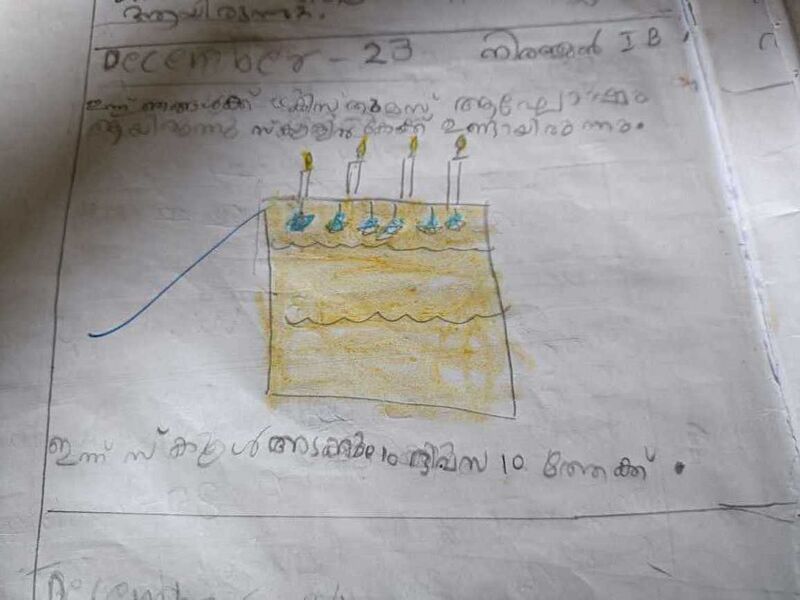 ആയിരുന്നു.
December - 23 നിരഞ്ജൻ I B
ഇന്ന് ഞങ്ങൾക്ക് ക്രിസ്തുമസ് ആഘോഷം
ആയിരുന്നു സ്കൂളിൽ കേക്ക് ഉണ്ടായിരുന്നു.
ഇന്ന് സ്കൂൾ അടക്കും 10 ദിവസ 10 ത്തേക്ക്.